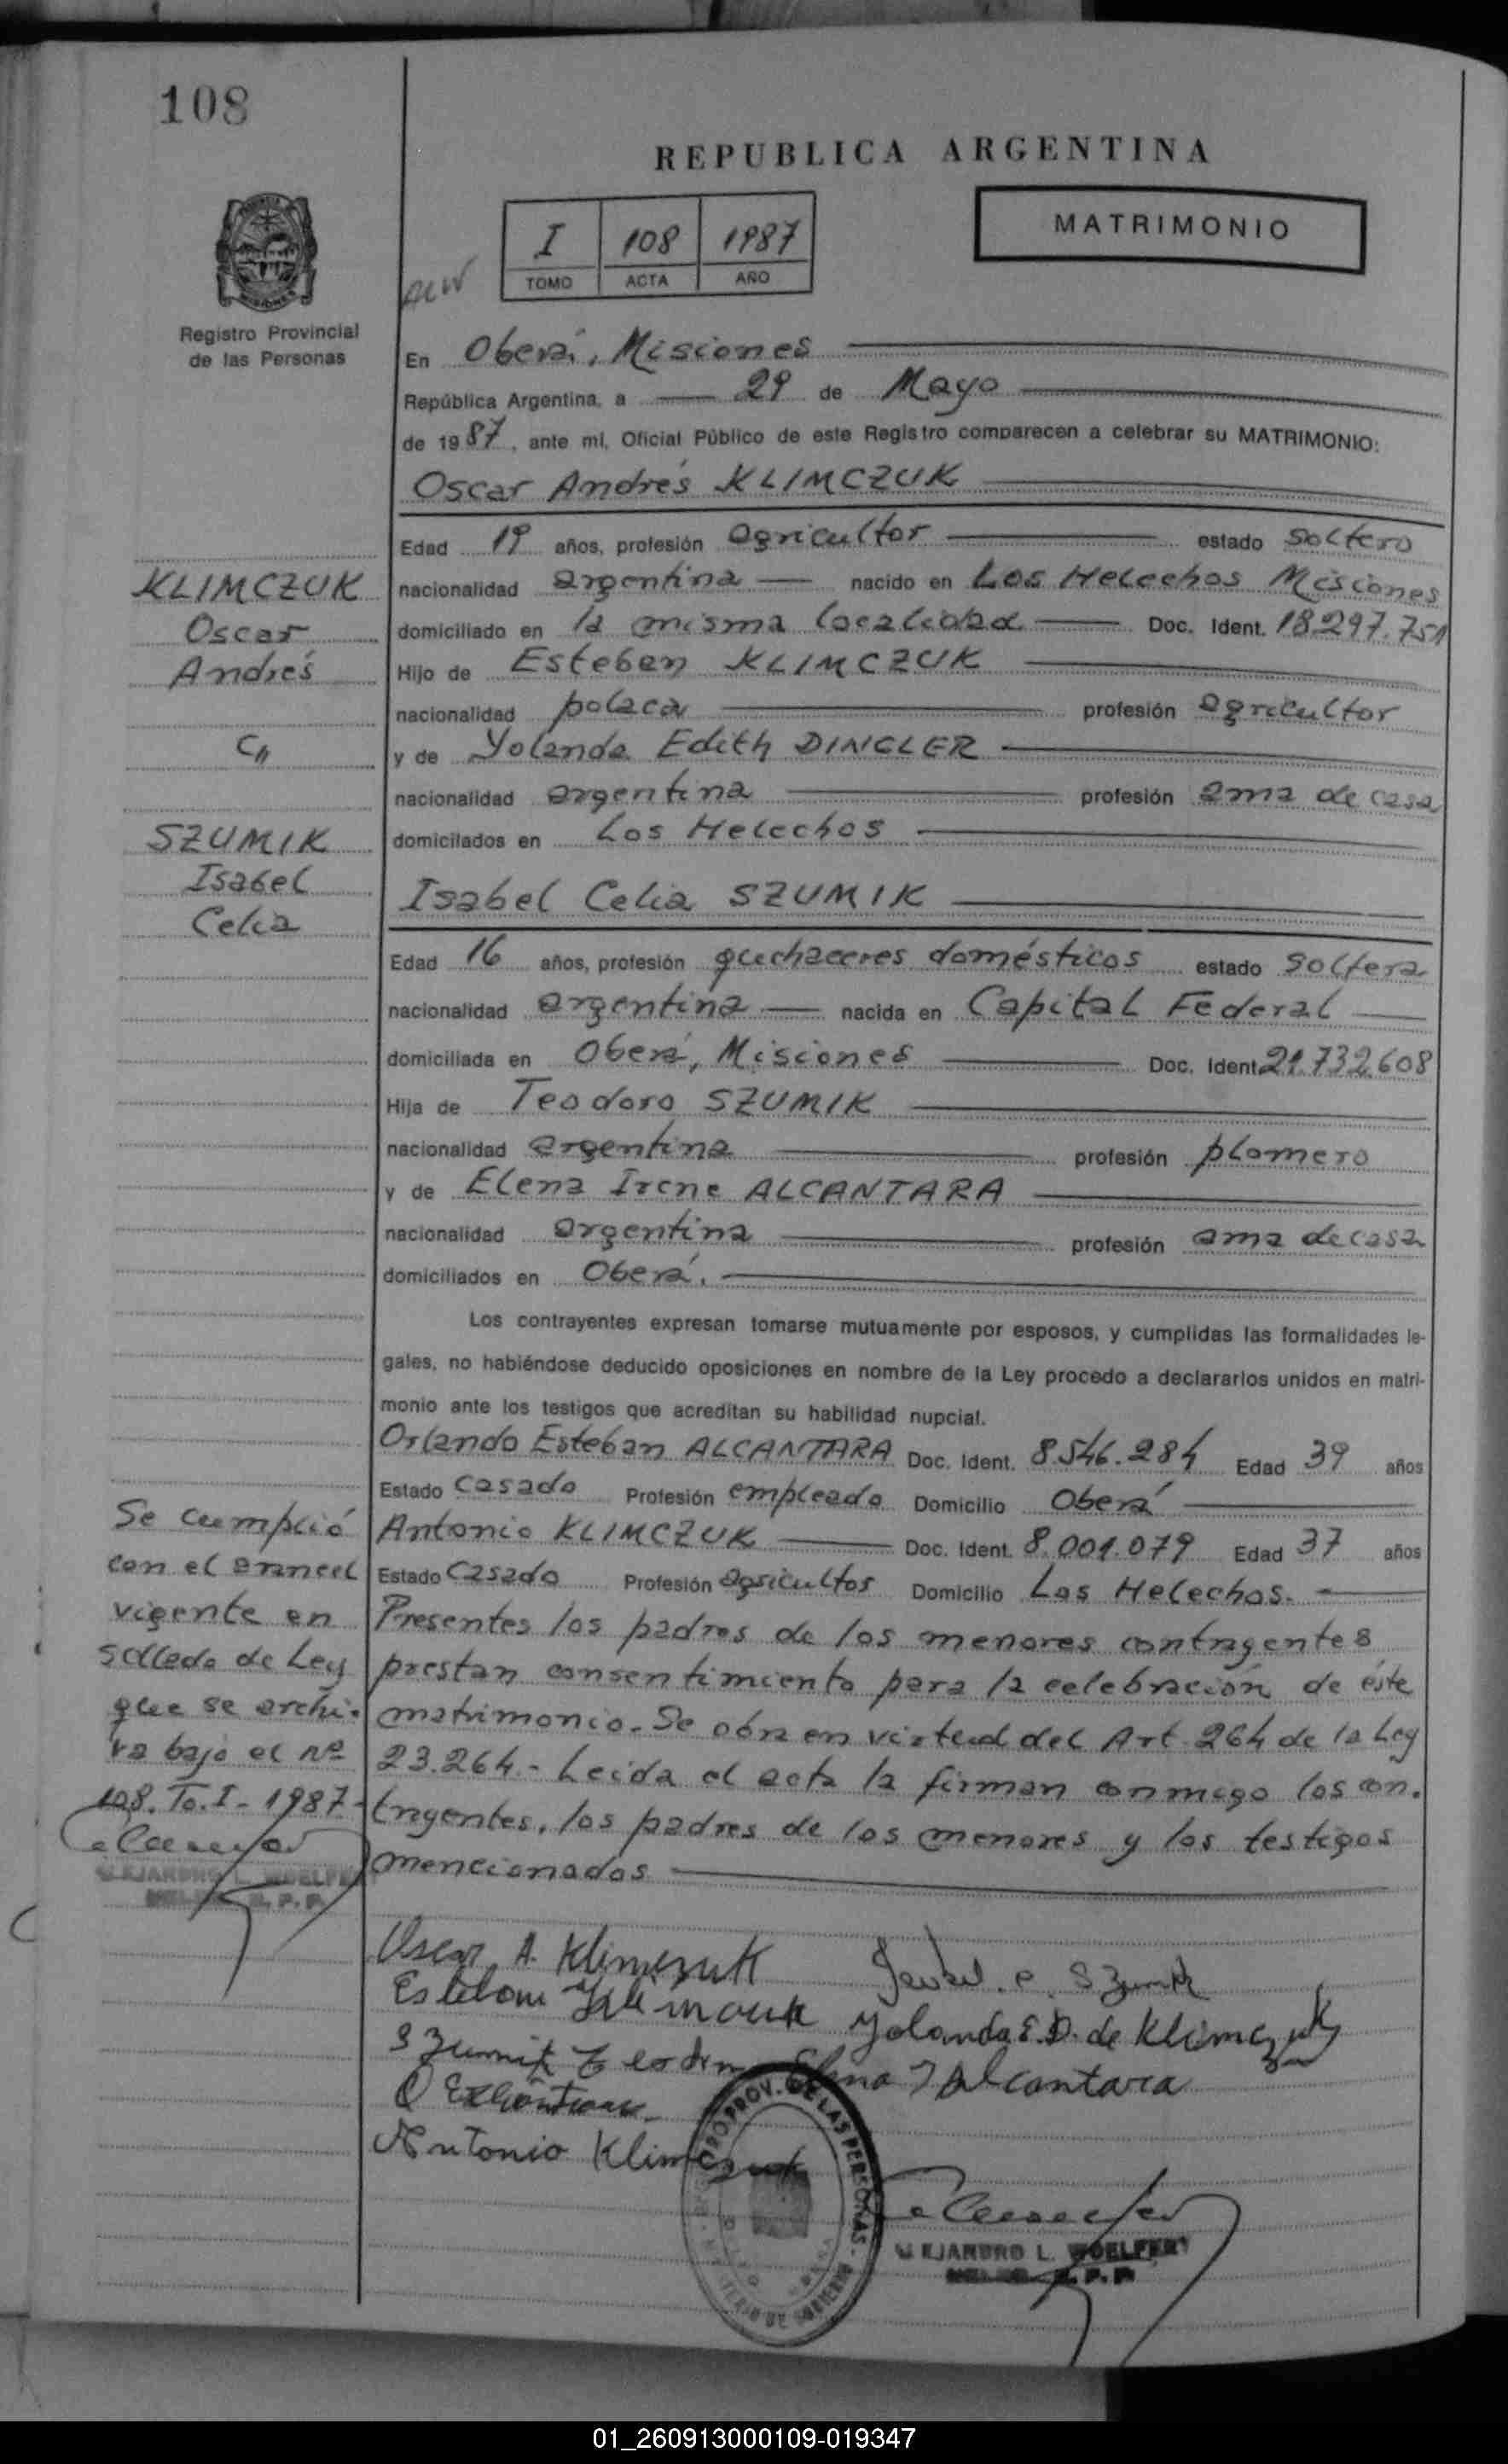 108
REPUBLICA ARGENTINA
MATRIMONIO
I 108 1987
TOMO ACTA AÑO
Registro Provincial
de las Personas
En Oberá, Misiones
República Argentina, a 29 de Mayo
de 1987, ante mí, Oficial Público de este Registro comparecen a celebrar su MATRIMONIO:
Oscar Andrés KLIMCZUK
Edad 19 años, profesión agricultor estado soltero
nacionalidad argentina nacido en Los Helechos Misiones
domiciliado en la misma localidad Doc. Ident. 18.297.751
Hijo de Esteban KLIMCZUK
nacionalidad polaca profesión agricultor
y de Yolanda Edith DINGLER
nacionalidad argentina profesión ama de casa
domicilados en Los Helechos
KLIMCZUK
Oscar
Andrés
c/
SZUMIK
Isabel
Celia
Isabel Celia SZUMIK
Edad 16 años, profesión quehaceres domésticos estado soltera
nacionalidad argentina nacida en Capital Federal
domiciliada en Oberá, Misiones Doc. Ident. 21.732.608
Hija de Teodoro SZUMIK
nacionalidad argentina profesión plomero
y de Elena Irene ALCANTARA
nacionalidad argentina profesión ama de casa
domiciliados en Oberá.
Los contrayentes expresan tomarse mutuamente por esposos, y cumplidas las formalidades le-
gales, no habiéndose deducido oposiciones en nombre de la Ley procedo a declararlos unidos en matri-
monio ante los testigos que acreditan su habilidad nupcial.
Orlando Esteban ALCANTARA Doc. Ident. 8.546.284 Edad 39 años
Estado casado Profesión empleado Domicilio Oberá
Antonio KLIMCZUK Doc. Ident. 8.001.079 Edad 37 años
Estado casado Profesión agricultor Domicilio Los Helechos.
Presentes los padres de los menores contrayentes
prestan consentimiento para la celebración de éste
matrimonio. Se obra en virtud del Art. 264 de la Ley
23.264.- Leída el acta la firman conmigo los con.
trayentes, los padres de los menores y los testigos
mencionados
Se cumplió
con el arancel
vigente en
sellado de Ley
que se archi-
va bajo el nº
108. To. I - 1987-
Oscar A. Klimczuk
Isabel. C. Szumik
Esteban Klimczuk
Yolanda E. D. de Klimczuk
Szumik Teodoro
Elena I Alcantara
Antonio Klimczuk
PROV. DE LAS PERSONAS
ALEJANDRO L. WOELFERT
01_260913000109-019347